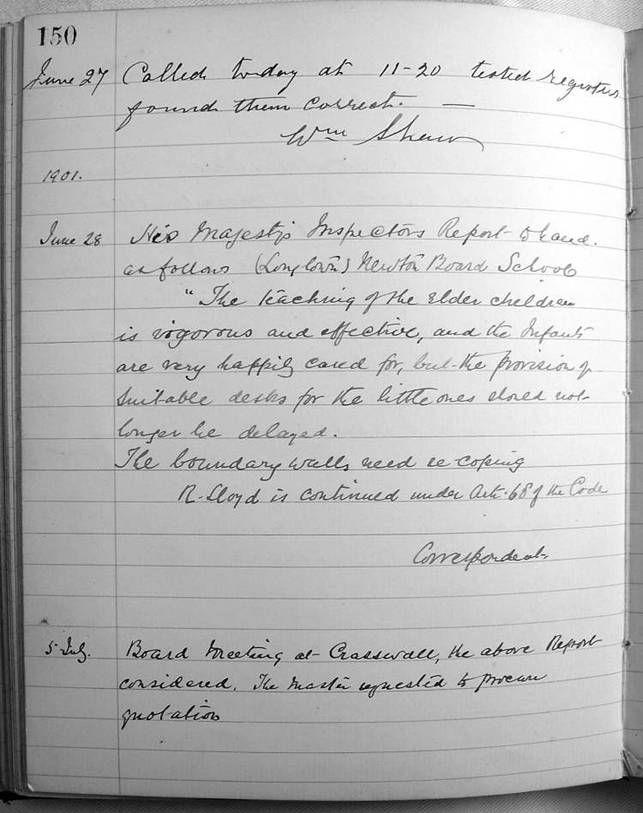 150
June 27 Called today at 11-20 tested registers
found them correct. —
Wm Shaw
1901.
June 28 His Majestys Inspectors Report to hand.
as follows (Longtown) Newton Board School
"The teaching of the elder children
is vigorous and effective, and the Infants
are very happily cared for, but the provision of
suitable desks for the little ones should not
longer be delayed.
The boundary walls need re-coping
R. Lloyd is continued under Art. 68 of the Code
Correspondent
5 July. Board Meeting at Crasswall, the above Report
considered. The Master requested to procure
quotation